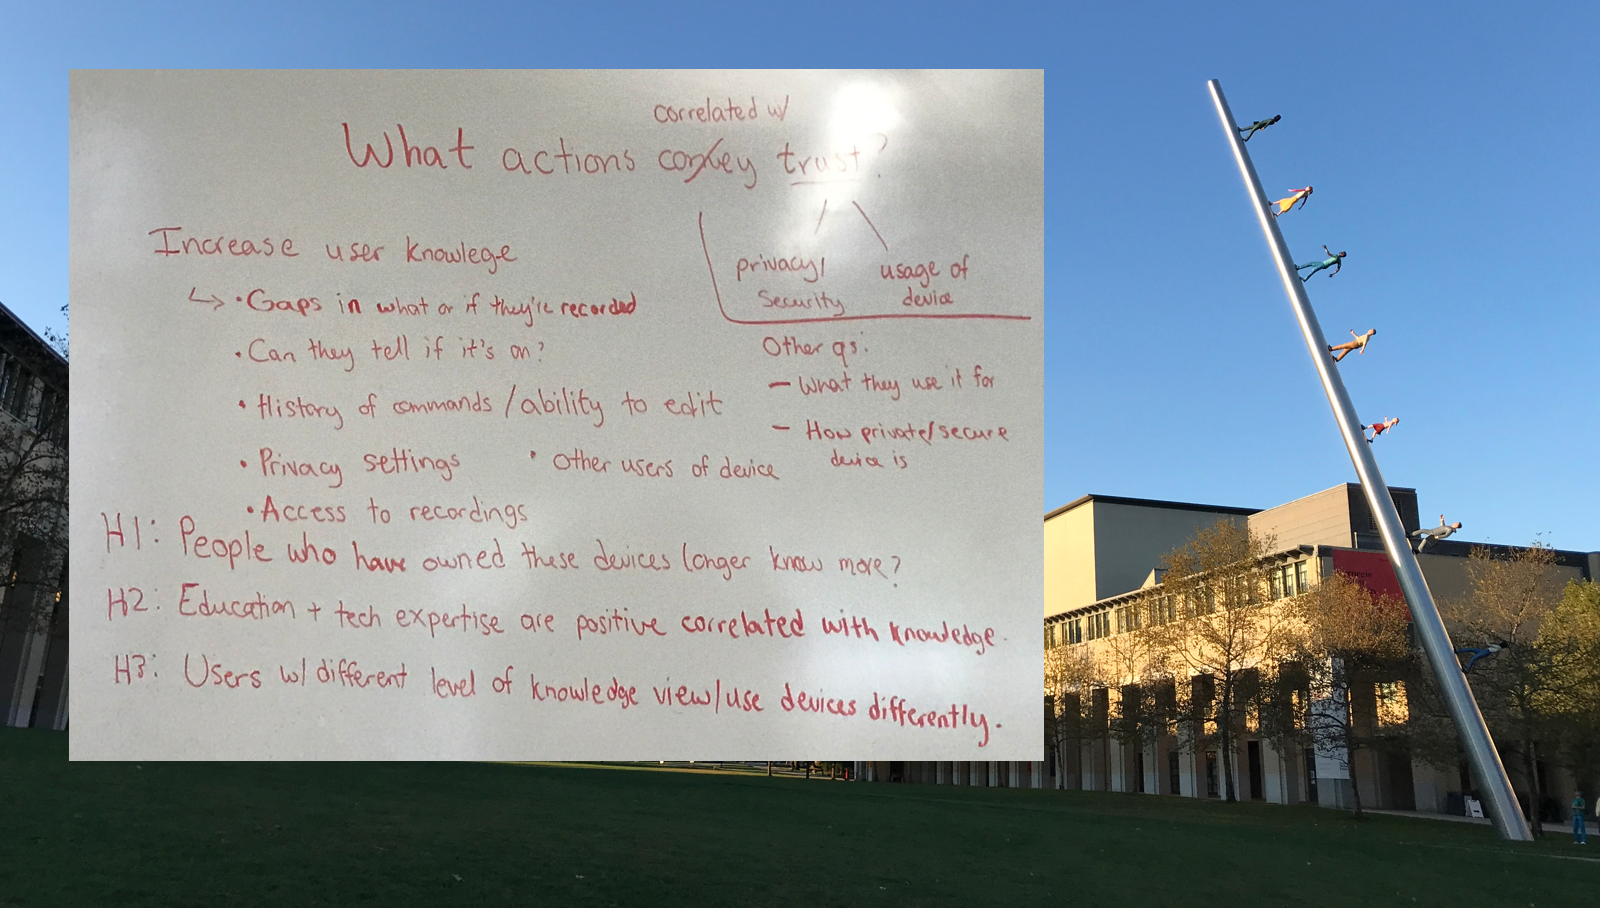 correlated w/
What actions convey trust?
privacy/
security
usage of
device
Increase user knowlege
↳ • Gaps in what or if they're recorded
• Can they tell if it's on?
• History of commands / ability to edit
• Privacy settings • Other users of device
• Access to recordings
Other qs:
— What they use it for
— How private/secure
device is
H1: People who have owned these devices longer know more?
H2: Education + tech expertise are positive correlated with knowledge.
H3: Users w/ different level of knowledge view/use devices differently.